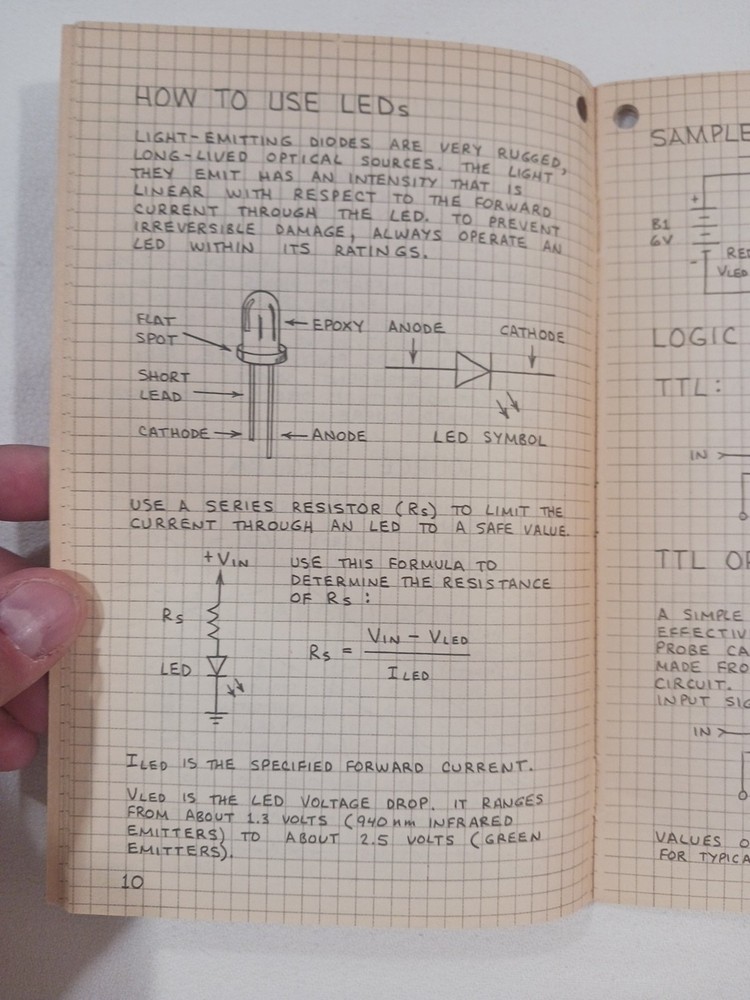 HOW TO USE LEDs
LIGHT-EMITTING DIODES ARE VERY RUGGED,
LONG-LIVED OPTICAL SOURCES. THE LIGHT
THEY EMIT HAS AN INTENSITY THAT IS
LINEAR WITH RESPECT TO THE FORWARD
CURRENT THROUGH THE LED. TO PREVENT
IRREVERSIBLE DAMAGE, ALWAYS OPERATE AN
LED WITHIN ITS RATINGS.
FLAT
SPOT
EPOXY
SHORT
LEAD
CATHODE
ANODE
ANODE
CATHODE
LED SYMBOL
USE A SERIES RESISTOR (Rs) TO LIMIT THE
CURRENT THROUGH AN LED TO A SAFE VALUE.
+VIN
Rs
LED
USE THIS FORMULA TO
DETERMINE THE RESISTANCE
OF Rs:
Rs = (VIN - VLED) / ILED
ILED IS THE SPECIFIED FORWARD CURRENT.
VLED IS THE LED VOLTAGE DROP. IT RANGES
FROM ABOUT 1.3 VOLTS (940 nm INFRARED
EMITTERS) TO ABOUT 2.5 VOLTS (GREEN
EMITTERS).
10
SAMPLE
+
B1
6V
-
RED
VLED
LOGIC
TTL:
IN
TTL
A SIMPLE
EFFECTIV
PROBE CA
MADE FRO
CIRCUIT.
INPUT SIG
IN
VALUES O
FOR TYPICA